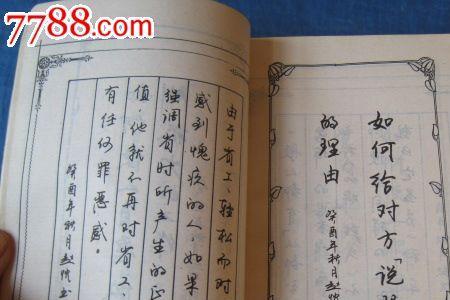 7788.com
中国收藏热线
如何给对方「说
的理由
癸酉年秋月
由于省工、轻松而对
感到愧疚的人，如果
强调省时所产生的正
值，他就不再对省工、
有任何罪恶感。
癸酉年秋月